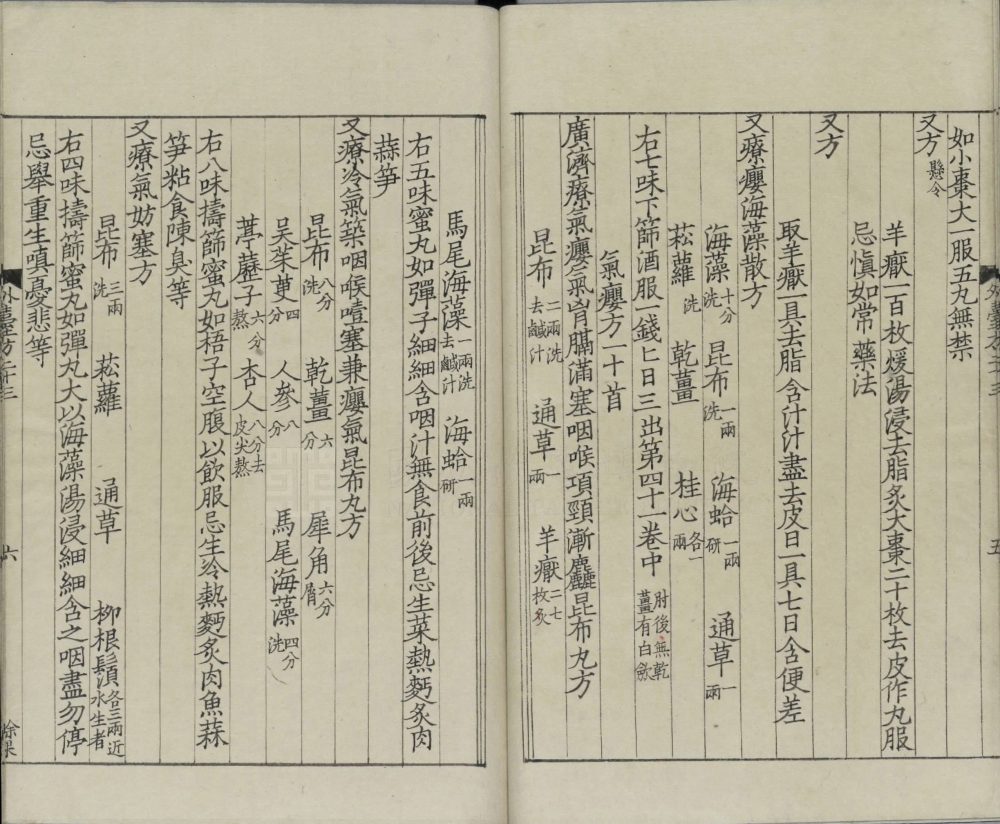 如小棗大一服五丸無禁
又方懸令
羊癧一百枚煖湯浸去脂炙大棗二十枚去皮作丸服
忌慎如常藥法
又方
取羊癧一具去脂含汁汁盡去皮日一具七日含便差
又療癭海藻散方
海藻十分洗 昆布一兩洗 海蛤一兩研 通草一兩
菘蘿洗 乾薑 桂心各一兩
右七味下篩酒服一錢匕日三出第四十一卷中肘後無乾薑有白斂
氣癭方一十首
廣濟療氣癭氣胷膈滿塞咽喉項頸漸麤昆布丸方
昆布二兩洗去鹹汁 通草一兩 羊癧二七枚炙
馬尾海藻一兩洗去鹹汁 海蛤一兩研
右五味蜜丸如彈子細細含咽汁無食前後忌生菜熱麪炙肉
蒜笋
又療冷氣築咽喉噎塞兼癭氣昆布丸方
昆布八分洗 乾薑六分 犀角六分屑
吳茱萸四分 人參八分 馬尾海藻四分洗
葶藶子六分熬 杏人八分去皮尖熬
右八味擣篩蜜丸如梧子空腹以飲服忌生冷熱麪炙肉魚蒜
笋粘食陳臭等
又療氣妨塞方
昆布三兩洗 菘蘿 通草 柳根鬚各三兩近水生者
右四味擣篩蜜丸如彈丸大以海藻湯浸細細含之咽盡勿停
忌舉重生嗔憂悲等
六